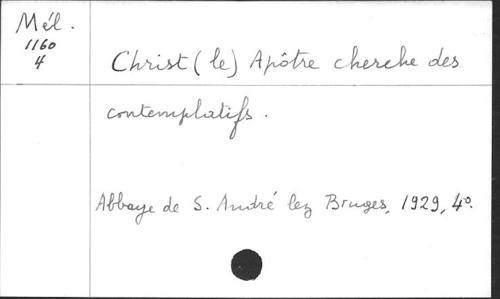 Mél.
1160
4
Christ (le) Apôtre cherche des
contemplatifs.
Abbaye de S. André lez Bruges, 1929, 4º.